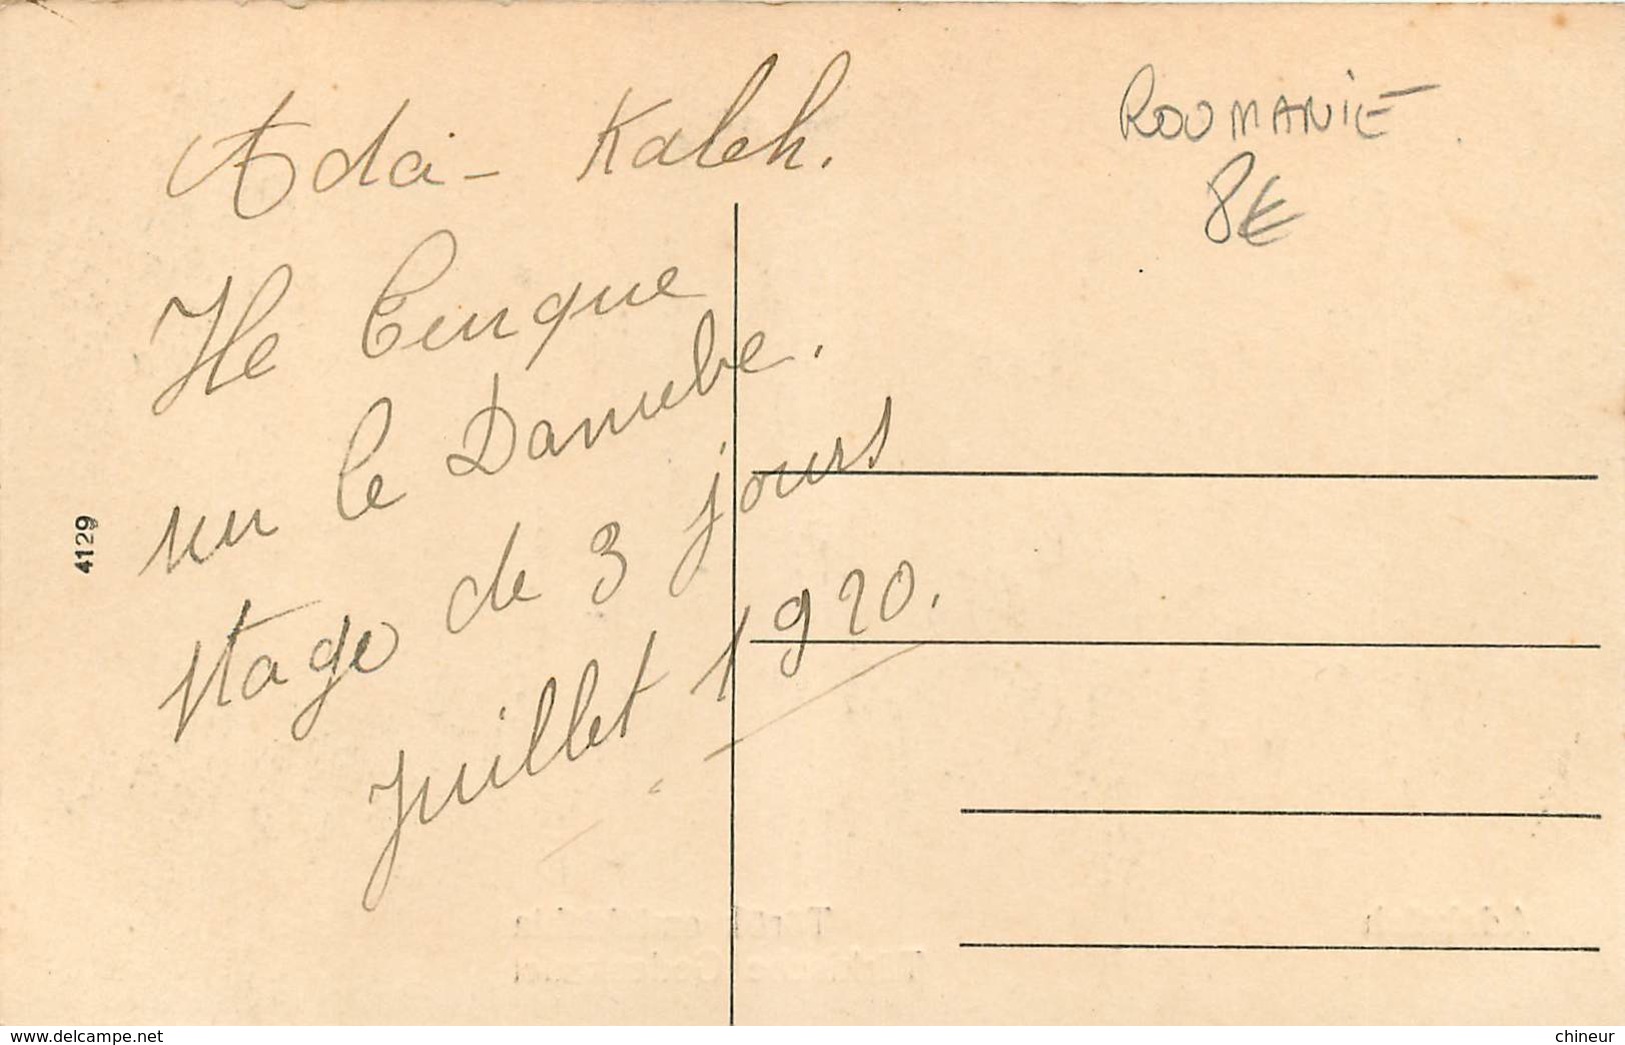 Ada-Kaleh.
Ile Turque
sur le Danube.
stage de 3 jours
Juillet 1920.
ROUMANIE
8€
4129
www.delcampe.net
chineur